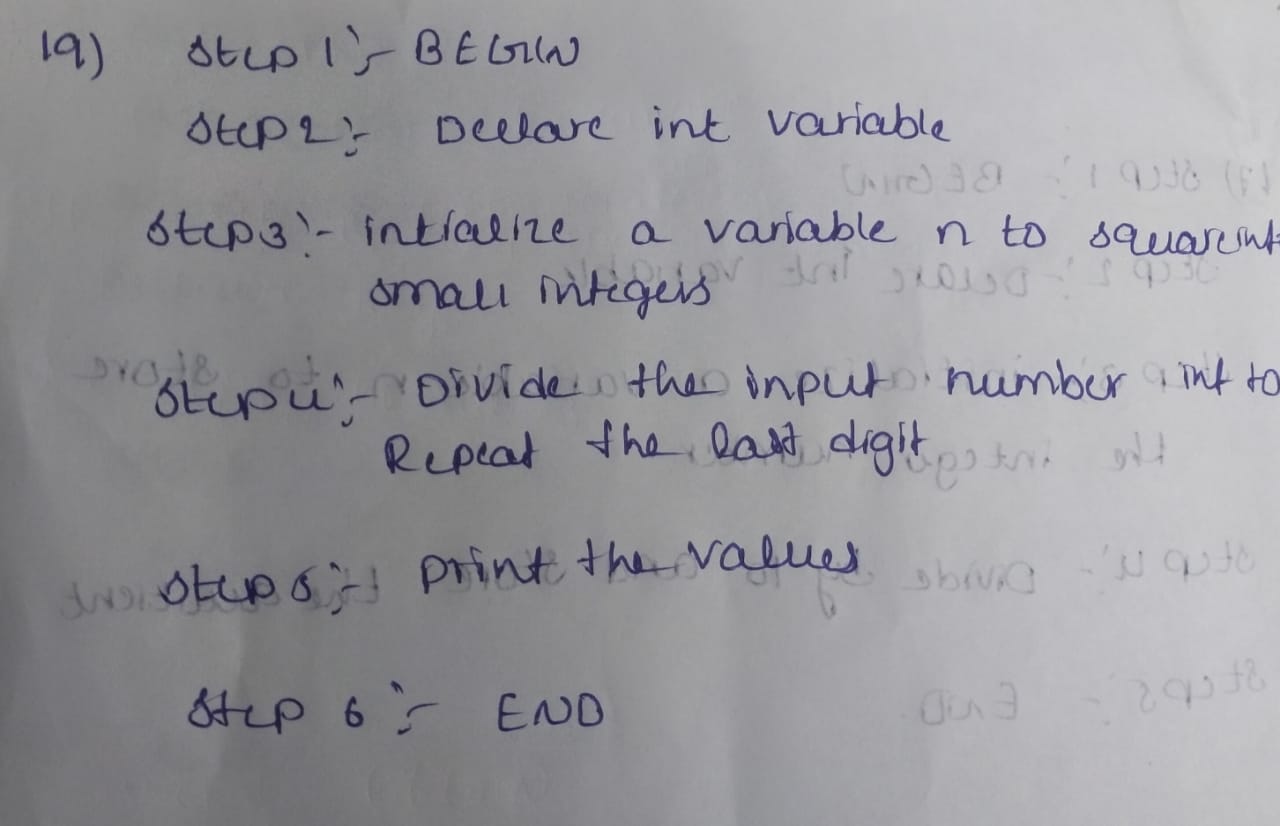 19) Step 1:- BEGIN
Step 2:- Declare int variable
Step 3:- intialize a variable n to squareint
small integers
Step 4:- Divide the input number int to
Repeat the last digit
Step 5:- print the values
Step 6:- END